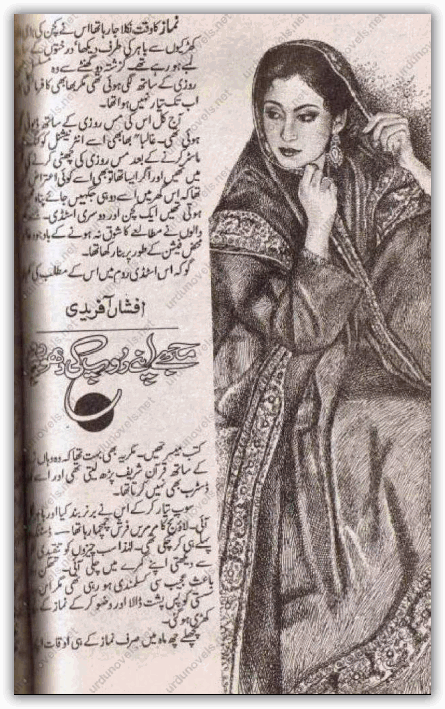 نماز کا وقت نکلا جا رہا تھا اس نے کچن کی
کھڑکیوں سے باہر کی طرف دیکھا درختوں کے
لمبے ہو رہے تھے۔ گزشتہ دو گھنٹے سے وہ
روزی کے ساتھ لگی ہوئی تھی مگر بھابھی کا
اب تک تیار نہیں ہوا تھا۔
آج کل اس کی مس روزی کے ساتھ ڈیوٹی
ہوئی تھی۔ غالباً بھابھی اسے انٹرنیشنل
ماسٹر کرنے کے بعد مس روزی کی چھٹی کرنے
میں تھیں اور اگر ایسا تھا تو بھی اسے کوئی اعتراض
تھا کہ اس گھر میں اسے دو ہی جگہیں جائے پناہ
ہوتی تھیں ایک کچن اور دوسری اسٹڈی۔
والوں نے مطالعے کا شوق نہ ہونے کے باوجود
محض فیشن کے طور پر بنا رکھا تھا۔
گو کہ اس اسٹڈی روم میں اس کے مطلب کی
افشاں آفریدی
کتب میسر تھیں۔ مگر یہ بھی بہت تھا کہ وہ وہاں
کے ساتھ قرآن شریف پڑھ لیتی تھی اور اسے
ڈسٹرب بھی نہیں کرتا تھا۔
سوپ تیار کر کے اس نے برنر بند کیا اور باہر
آئی۔ لاؤنج کا مرمریں فرش چمچما رہا تھا۔
پہلے ہی کر چکی تھی۔ لہٰذا سب چیزوں کو تنقیدی
سے دیکھتی اپنے کمرے میں چلی آئی۔ تھکن
باعث عجیب سی کسلمندی ہو رہی تھی مگر اس
سستی کو پس پشت ڈالا اور وضو کر کے نماز کے
کھڑی ہو گئی۔
پچھلے چھ ماہ میں صرف نماز کے ہی اوقات
urdunovels.net